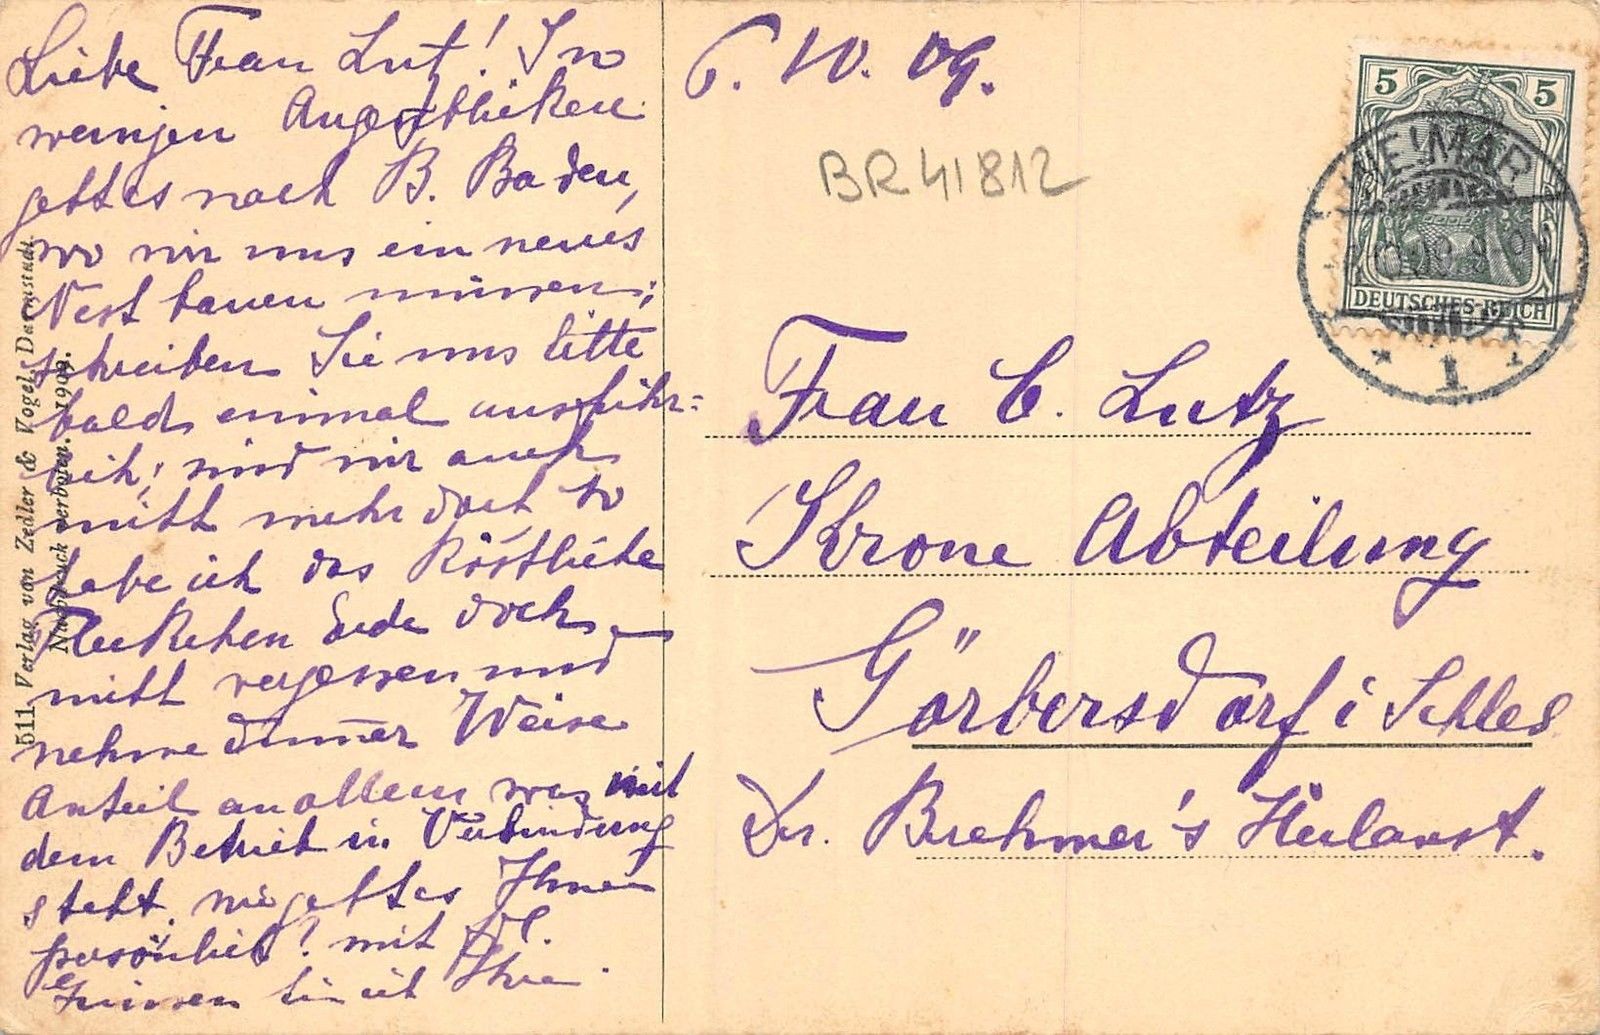 Liebe Frau Lutz! In
wenigen Augenblicken
geht es nach B. Baden,
wo wir uns ein neues
Nest bauen müssen;
schreiben Sie uns bitte
bald einmal ausführ=
lich; sind wir auch
nicht mehr dort so
habe ich das köstliche
Fleckchen Erde doch
nicht vergessen und
nehme immer Weise
Anteil an allem was mit
dem Betrieb in Verbindung
steht. wie geht es Ihnen
persönlich? mit hl.
Grüssen bin ich Ihre
511. Verlag von Zedler & Vogel, Darmstadt.
Nachdruck verboten. 1909.
6. 10. 09.
BR41812
5 5
DEUTSCHES-REICH
WEIMAR
* 1 *
Frau C. Lutz
Krone Abteilung
Görbersdorf i Schles
Dr. Brehmer's Heilanst.